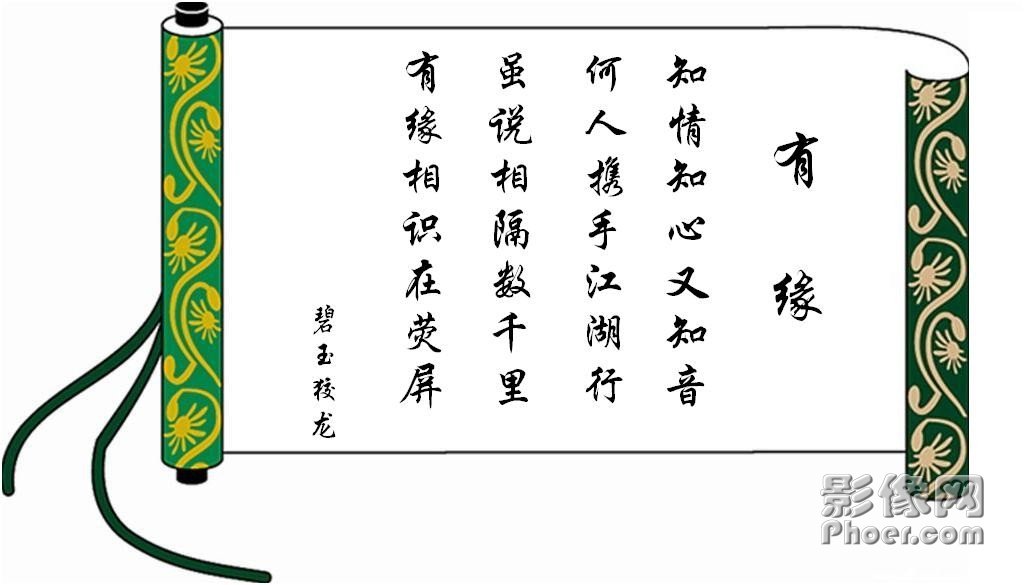 有缘
知情知心又知音
何人携手江湖行
虽说相隔数千里
有缘相识在荧屏
碧玉狡龙
影像网
Phoer.com